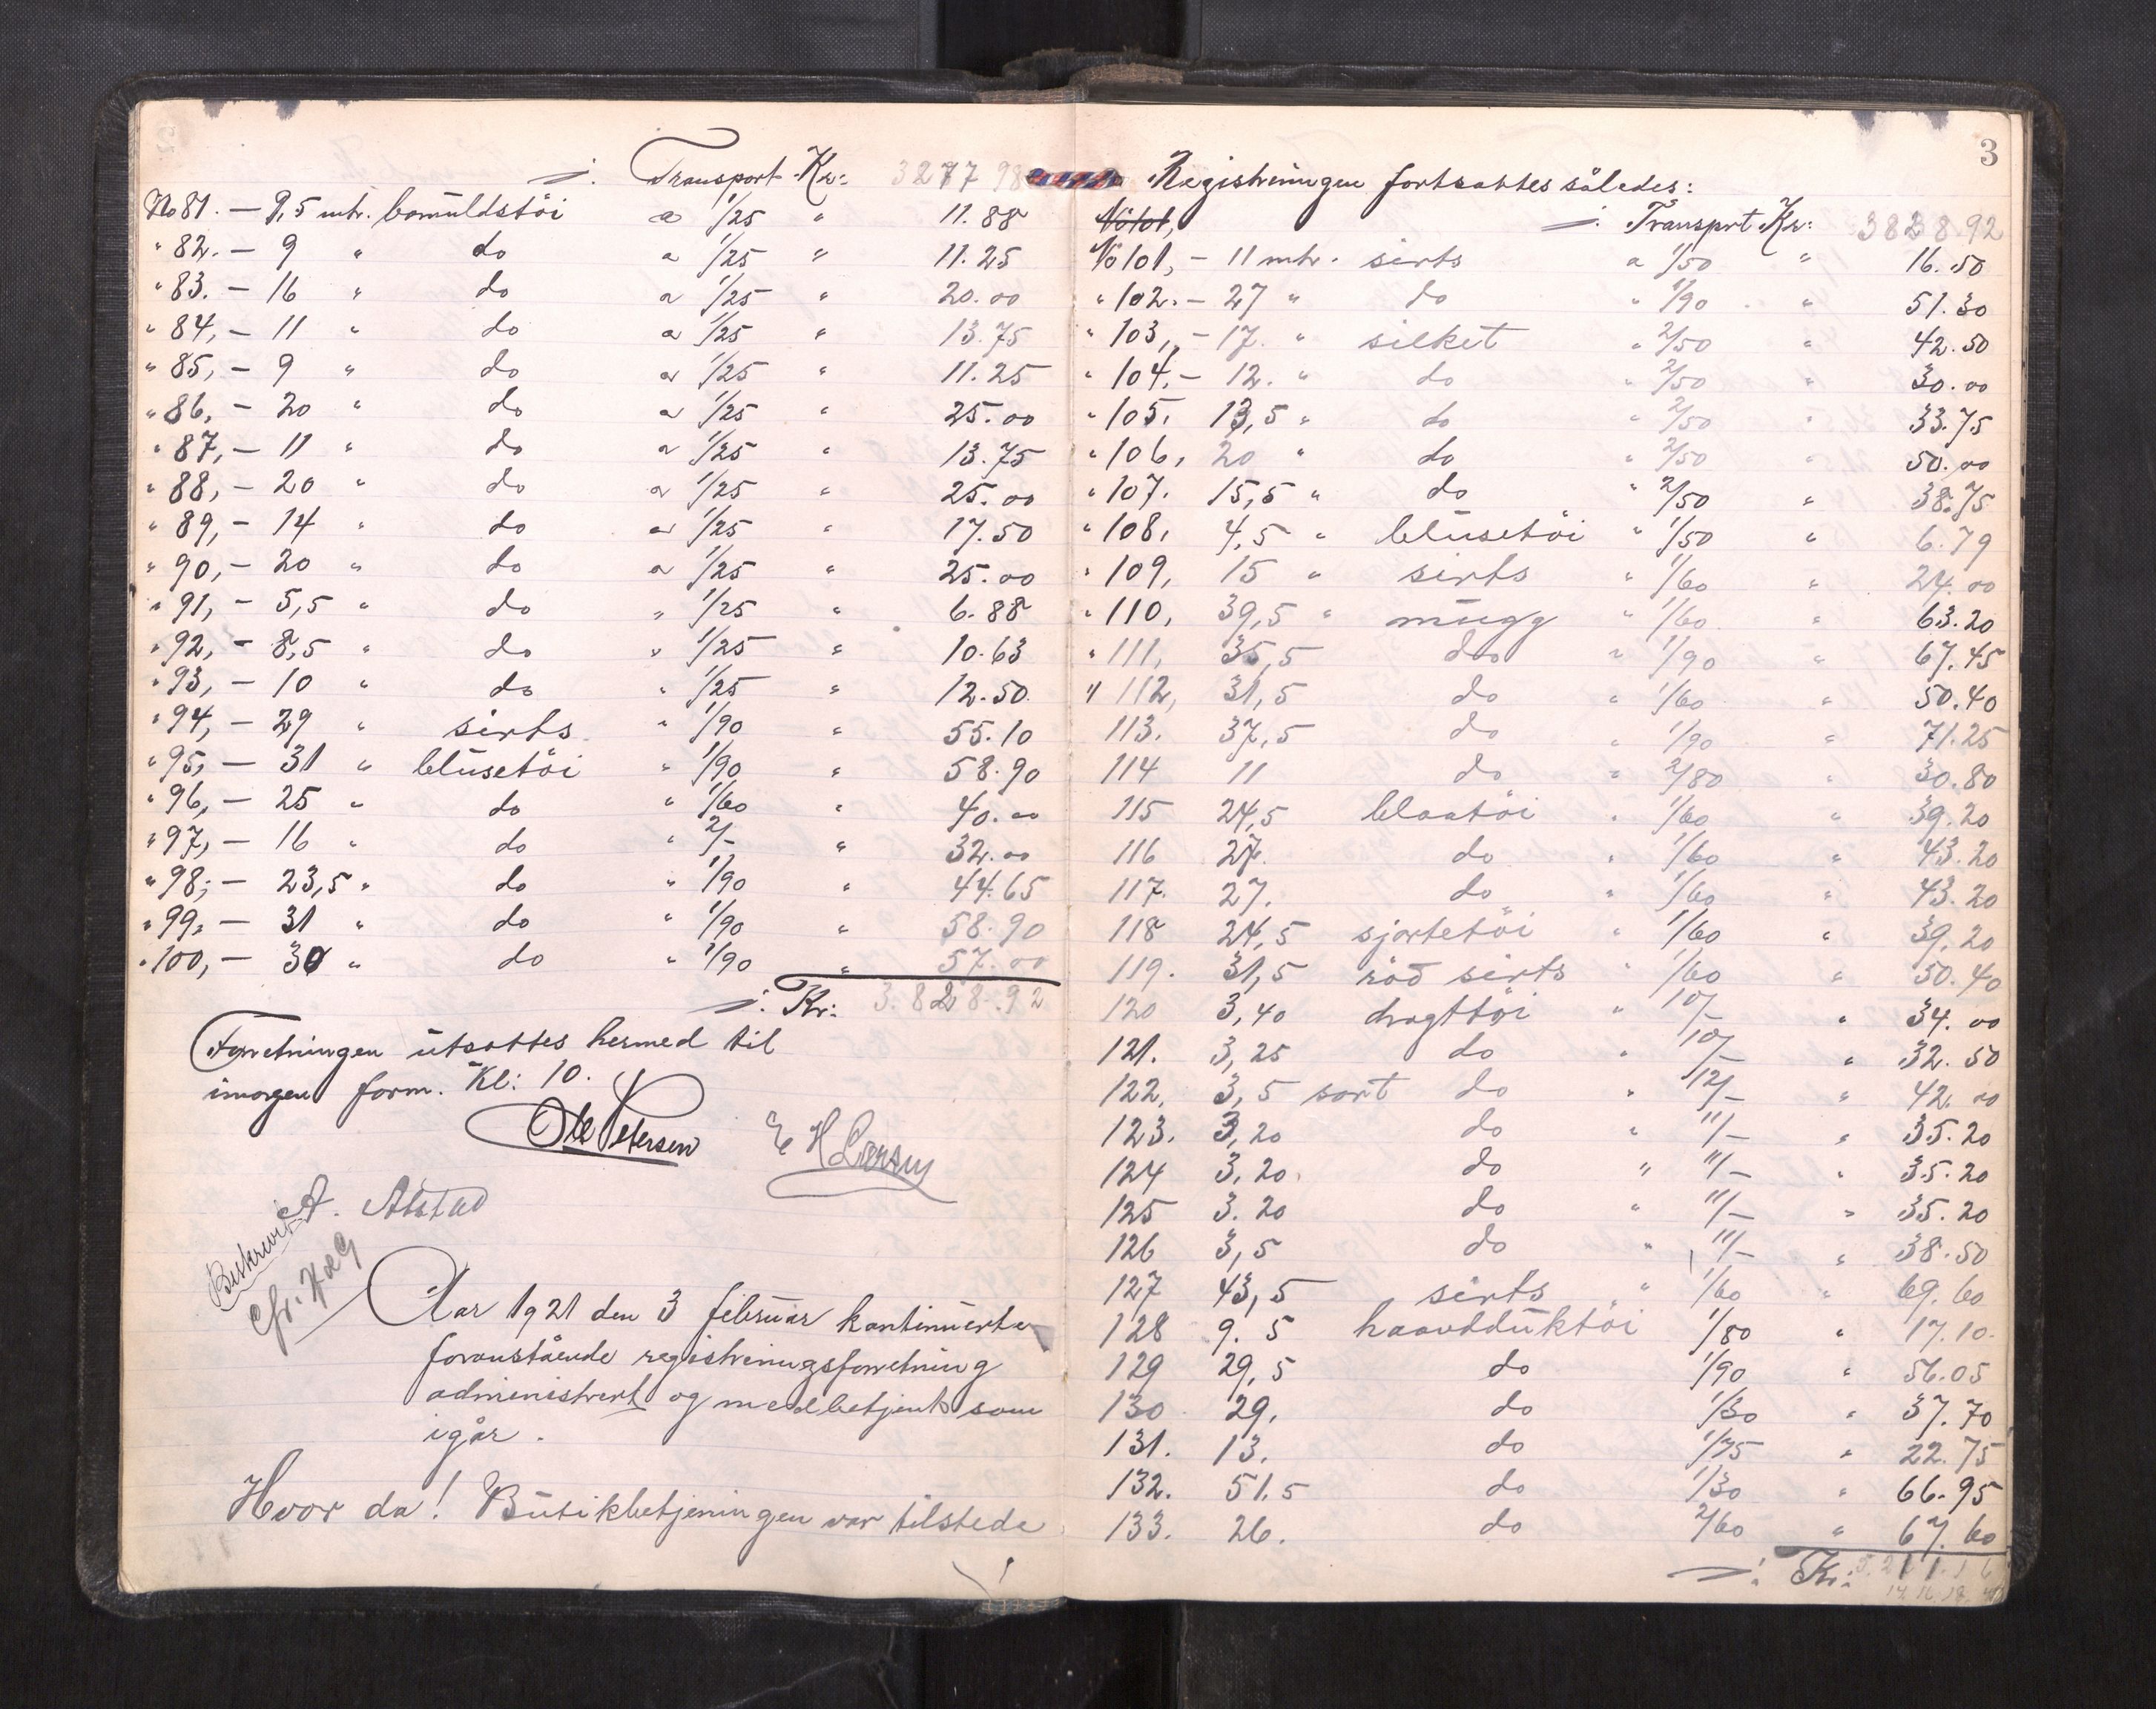 ÷. Transport Kr: 3277 98
No 81. — 9,5 mtr. bomuldstöi a 1/25 " 11.88
" 82. — 9 " do a 1/25 " 11.25
" 83. — 16 " do a 1/25 " 20.00
" 84, — 11 " do a 1/25 " 13.75
" 85, — 9 " do a 1/25 " 11.25
" 86, — 20 " do a 1/25 " 25.00
" 87, — 11 " do a 1/25 " 13.75
" 88, — 20 " do a 1/25 " 25.00
" 89, — 14 " do a 1/25 " 17.50
" 90, — 20 " do a 1/25 " 25.00
" 91, — 5,5 " do " 1/25 " 6.88
" 92, — 8,5 " do " 1/25 " 10.63
" 93, — 10 " do " 1/25 " 12.50
" 94, — 29 " sirts " 1/90 " 55.10
" 95, — 31 " blusetöi " 1/90 " 58.90
" 96, — 25 " do " 1/60 " 40.00
" 97, — 16 " do " 2/- " 32.00
" 98, — 23,5 " do " 1/90 " 44.65
" 99, — 31 " do " 1/90 " 58.90
" 100, — 30 " do " 1/90 " 57.00
÷. Kr: 3.828.92
Forretningen utsattes hermed til
imorgen form. Kl: 10.
Ole Petersen E H Larsen
A. Alstad
Beskrevet
Chr. H&G
Aar 1921 den 3 februar kontinuertes
foranstående registreringsforretning
administrert og medbetjent som
igår.
Hvor da! Butikbetjeningen var tilstede
3
Registreringen fortsattes således:
No 101,
÷. Transprt Kr: 3828.92
No 101, — 11 mtr. sirts a 1/50 " 16.50
" 102. — 27 " do " 1/90 " 51.30
" 103, — 17. " silket " 2/50 " 42.50
" 104. — 12. " do " 2/50 " 30.00
" 105. 13,5 " do " 2/50 " 33.75
" 106, 20 " do " 2/50 " 50.00
" 107. 15,5 " do " 2/50 " 38.75
" 108, 4,5 " blusetöi " 1/50 " 6.79
" 109, 15 " sirts " 1/60 " 24.00
" 110, 39,5 " mugg " 1/60 " 63.20
" 111, 35,5 do " 1/90 " 67.45
" 112, 31,5 do " 1/60 " 50.40
113. 37,5 do " 1/90 " 71.25
114 11 do " 2/80 " 30.80
115 24,5 blaatöi " 1/60 " 39.20
116 27. do " 1/60 " 43.20
117. 27. do " 1/60 " 43.20
118 24,5 sjortetöi " 1/60 " 39.20
119. 31,5 röd sirts " 1/60 " 50.40
120 3,40 dragttöi " 10/- " 34.00
121. 3,25 do " 10/- " 32.50
122, 3,5 sort do " 12/- " 42.00
123. 3,20 do " 11/- " 35.20
124 3,20. do " 11/- " 35.20
125 3.20 do " 11/- " 35.20
126 3,5 do " 11/- " 38.50
127 43,5 sirts " 1/60 " 69.60
128 9.5 haandduktöi 1/80 " 17.10
129 29,5 do 1/90 " 56.05
130 29, do 1/30 " 37.70
131. 13. do 1/75 " 22.75
132. 51.5 do 1/30 " 66.95
133. 26. do 2/60 " 67.60
÷. Kr: